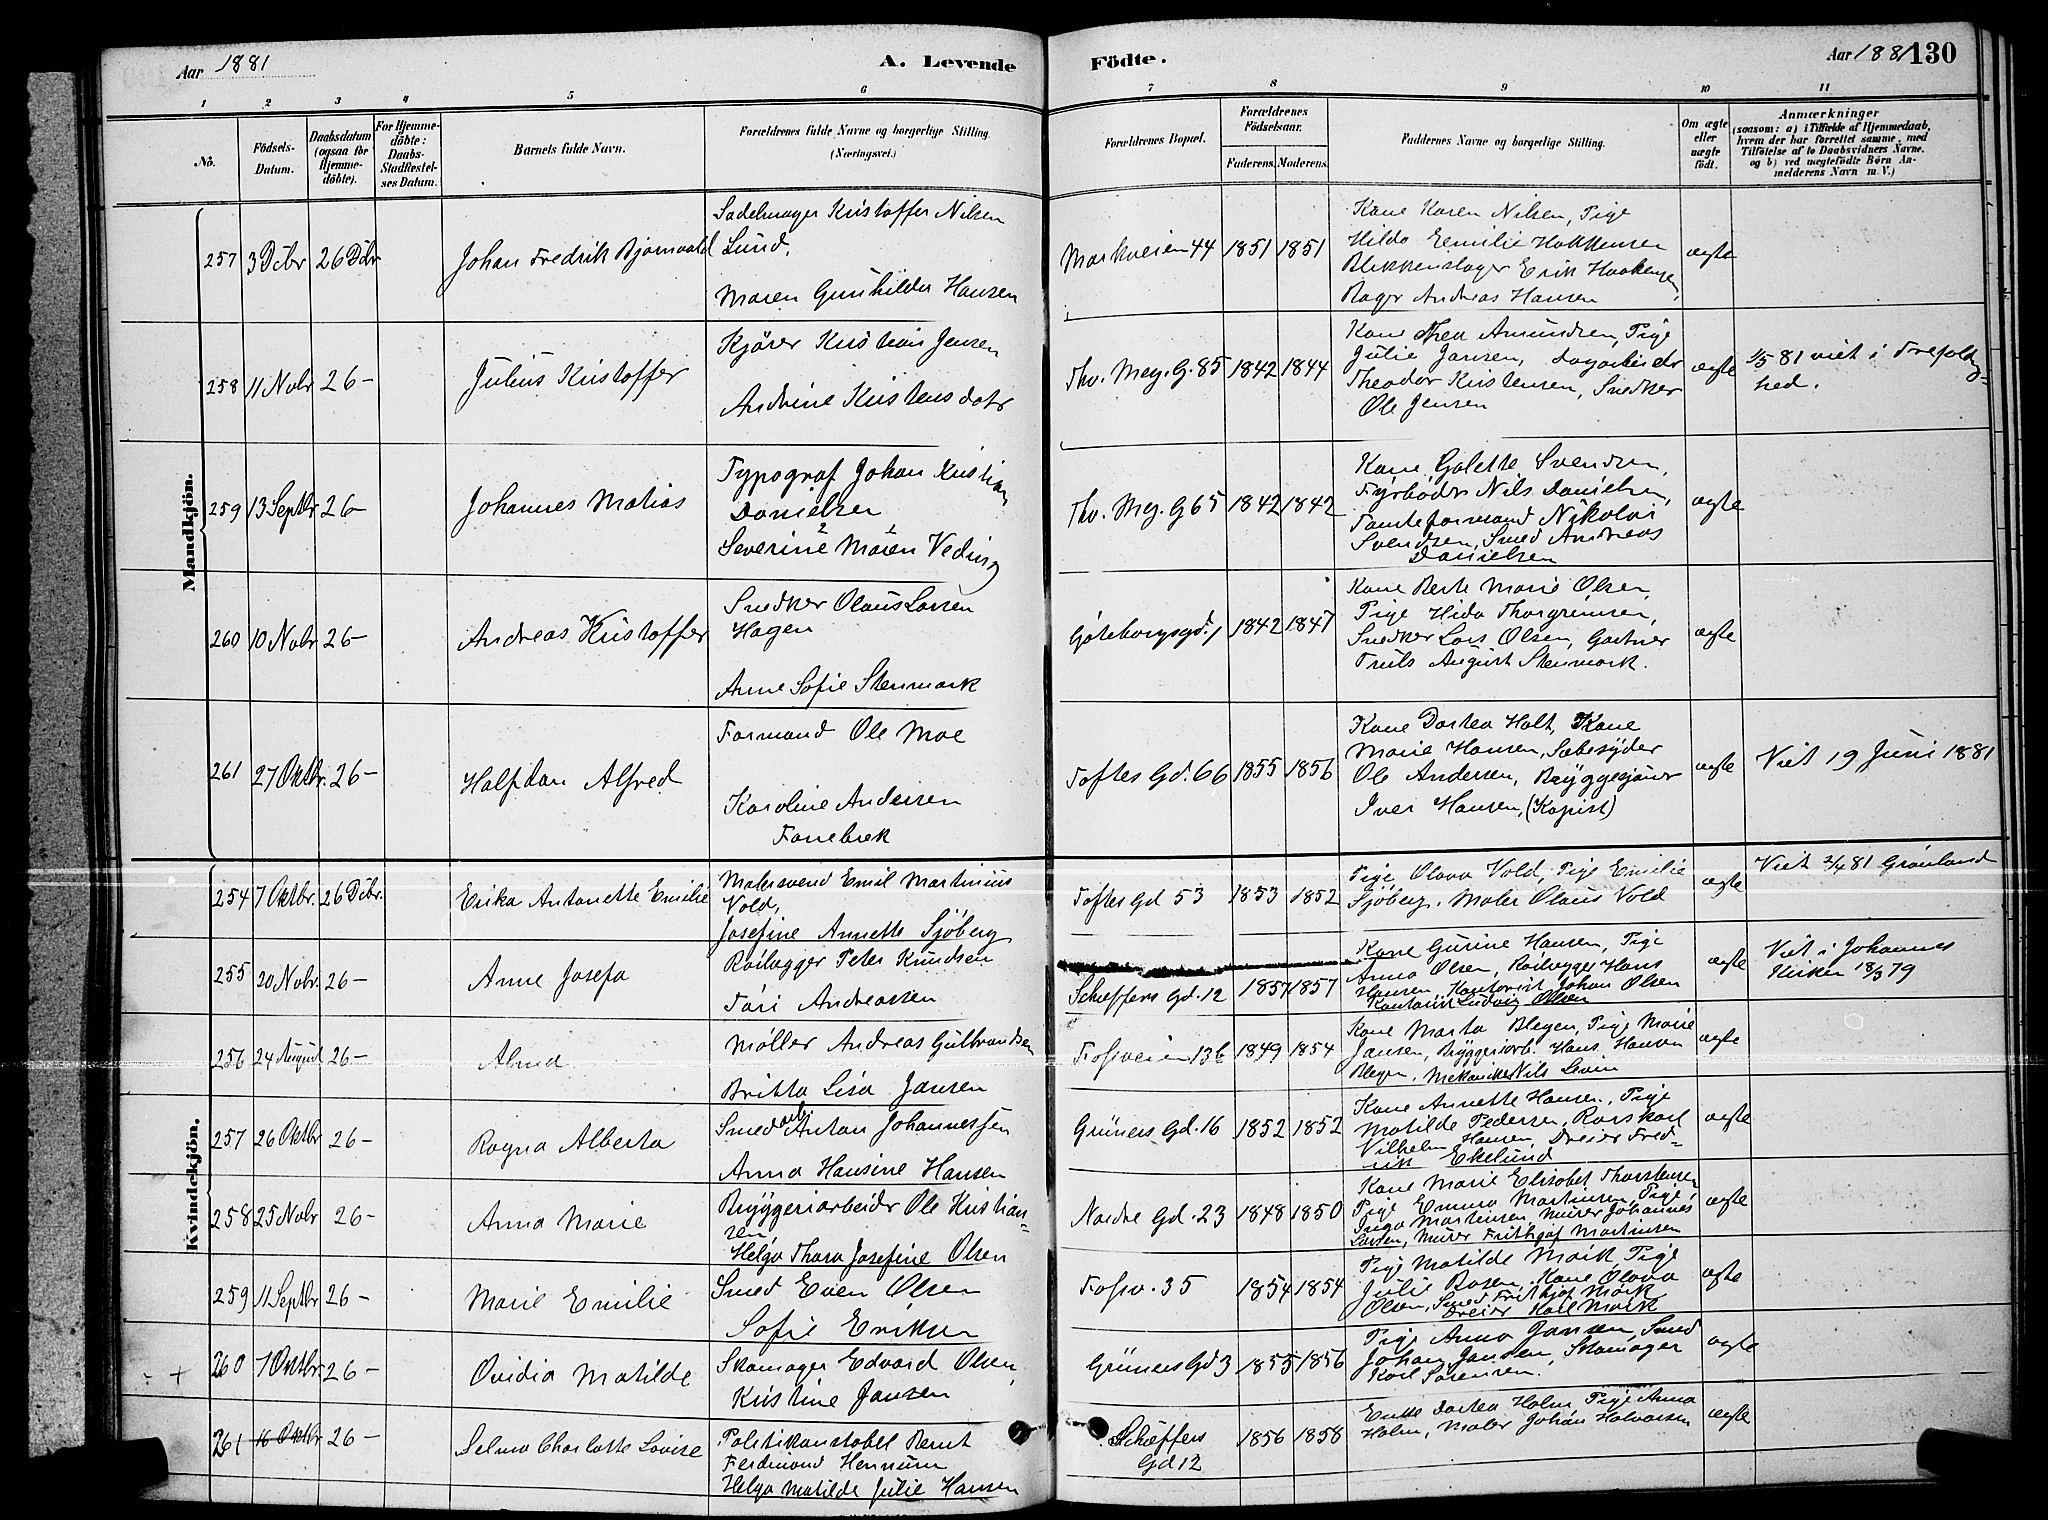 Aar 1881
A. Levende
Födte.
Aar 1881
130
1 2 3 4 5 6 7 8 9 10 11
No.
Födsels-
Datum.
Daabsdatum
(ogsaa for
Hjemme-
döbte).
For Hjemme-
döbte:
Daabs-
Stadfæstel-
ses Datum.
Barnets fulde Navn.
Forældrenes fulde Navne og borgerlige Stilling.
(Næringsvei.)
Forældrenes Bopæl.
Forældrenes
Födselsaar.
Faderens. Moderens.
Faddernes Navne og borgerlige Stilling.
Om ægte
eller
uægte
födt.
Anmærkninger
(saasom: a) i Tilfælde af Hjemmedaab,
hvem der har forrettet samme, med
Tilföielse af to Daabsvidners Navne.
og b) ved uægtefödte Börn An-
melderens Navn m. V.)
Mandkjön.
257 3 Dcbr 26 Dcbr
Johan Fredrik Bjarnvald
Sadelmager Kristoffer Nilsen
Lund,
Maren Gunhilda Hansen
Markveien 44 1851 1851
Kone Karen Nilsen, Pige
Hilda Emilie Hakkensen
Blikkenslager Erik Haakensen,
Bager Andreas Hansen
ægte
258 11 Nvbr 26-
Julius Kristoffer
Kjörer Kristian Jensen
Andrine Kristensdatr
Thv. Mey. G. 85 1842 1844
Kone Thea Amundsen, Pige
Julie Jansen, Dagarbeider
Theodor Kristensen, Snedker
Ole Jensen
ægte
1/5 81 viet i Trefoldig-
hed.
259 13 Septbr 26-
Johannes Matias
Typograf Johan Kristian
Danielsen
Severine Maren Veding
Thv. Mey. G 65 1842 1842
Kone Galette Svendsen,
Fyrböder Nils Danielsen,
Tomteformand Nikolai
Svendsen, Smed Andreas
Danielsen
ægte
260 10 Nvbr 26-
Andreas Kristoffer
Snedker Olaus Larsen
Hagen
Anne Sofie Stenmark
Göteborgsgd. 1 1842 1847
Kone Berte Marie Olsen,
Pige Hida Thorgrimsen,
Snedker Lars Olsen, Gartner
Truls August Stenmark.
ægte
261 27 Oktbr. 26-
Halfdan Alfred
Formand Ole Moe
Karoline Andersen
Fanebæk
Toftes Gd. 66 1855 1856
Kone Dortea Holt, Kone
Marie Hansen, Sæbesyder
Ole Andersen, Bryggesjauer
Iver Hansen, (Kopist)
ægte
Viet 19 Juni 1881
Kvindekjön.
254 7 Oktbr. 26 Dcbr.
Erika Antonette Emilie
Malersvend Emil Martinius
Vold,
Josefine Annette Sjöberg
Toftes Gd 53 1853 1852
Pige Olava Vold, Pige Emilie
Sjöberg, Maler Olaus Vold
ægte
Viet 2/4 81 Grönland
255 20 Nvbr. 26-
Anne Josefa
Rörlægger Peter Knudsen
Tari Andreassen
Schæffers Gd. 12 1857 1857
Kone Gurine Hansen, Pige
Anna Olsen, Rörlægger Hans
Hansen, Kontorist Johan Olsen
Kontorist Ludvig Olsen
ægte
Viet i Johannes
Kirken 18/3 79
256 24 August 26-
Alma
Möller Andreas Gulbrandsen
Britta Lisa Jansen
Fossveien 13b 1849 1854
Kone Marta Blegen, Pige Marie
Jansen, Bryggeriarb. Hans Hansen
Blegen, Mekaniker Nils
ægte
257 26 Oktbr 26-
Ragna Alberta
Smedarb. Anton Johannessen
Anna Hansine Hansen
Grüners Gd. 16 1852 1852
Kone Annette Hansen, Pige
Matilde Pedersen,
Vilhelm Hansen, Dreier Fred-
rik Ekelund
ægte
258 25 Nvbr 26-
Anna Marie
Bryggeriarbeider Ole Kristian-
sen,
Helga Thora Josefine Olsen
Nordre Gd. 23 1848 1850
Kone Marie Elisabet Thorstensen
Pige Emma Martinsen, Pige
Inga Martinsen, Murer Johannes
Larsen, Murer Frithjof Martinsen
ægte
259 11 Septbr 26-
Marie Emilie
Smed Even Olsen
Sofie Eriksen
Fossv. 35 1854 1854
Pige Matilde Mørk, Pige
Julie Rosen, Kone Olava
Olsen, Smed Frithjof Mørk
Dreier Karl Mørk
ægte
÷ +
260 7 Oktbr. 26-
Ovidia Matilde
Skomager Edvard Olsen,
Kristine Jansen
Grüners Gd 3 1855 1856
Pige Anna Jansen, Smed
Johan Jansen, Skomager
Karl Sörensen.
ægte
261 16 Oktbr 26-
Selma Charlotte Lovise
Politikonstabel Bernt
Ferdinand Hennum
Helga Matilde Julie Hansen
Schæffers
Gd 12
1856 1858
Enke Dortea Holm, Pige Anna
Holm, Maler Johan Halvorsen
ægte